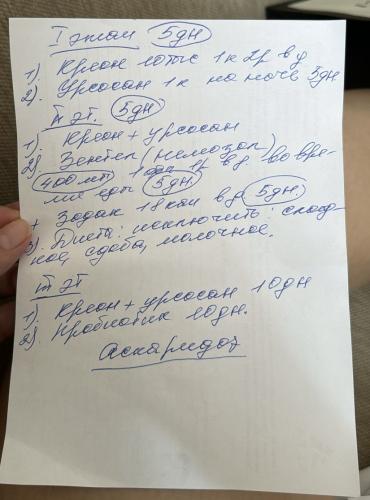 I этап 5дн
1). Креон 10тыс 1к 2р в д
2). Урсосан 1к на ночь 5дн
II эт. 5дн
1). Креон + урсосан
2). Зентел (немозол)
400мг 1р в д во вре-
мя еды 5дн.
+ Зодак 18 кап в д 5дн.
3). Диета: исключить: слад-
кое, сдоба, молочное.
III эт
1). Креон + урсосан 10дн
2). Пробиотик 10дн.
Аскаридоз